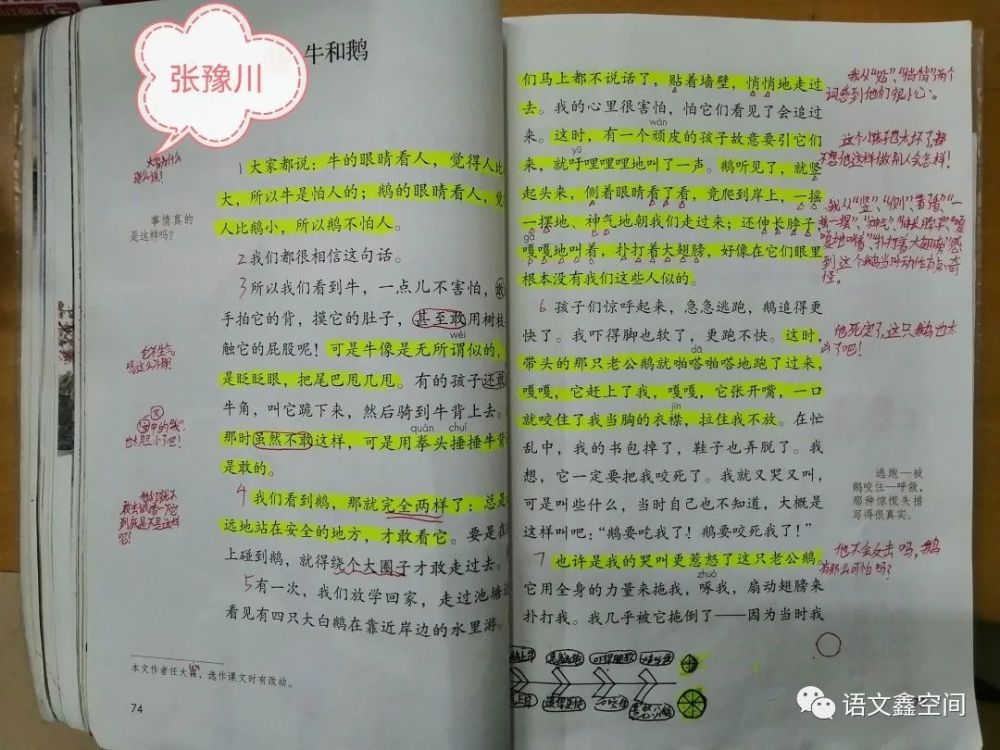 张豫川
牛和鹅
大家为什么
那么说!
1大家都说:牛的眼睛看人,觉得人比
大,所以牛是怕人的;鹅的眼睛看人,觉
人比鹅小,所以鹅不怕人。
事情真的
是这样吗?
2我们都很相信这句话。
3所以我们看到牛,一点儿不害怕,敢
手拍它的背,摸它的肚子,甚至敢用树枝
wèi
触它的屁股呢!可是牛像是无所谓似的,
是眨眨眼,把尾巴甩几甩。有的孩子还敢
牛角,叫它跪下来,然后骑到牛背上去。
quán chuí
那时虽然不敢这样,可是用拳头捶捶牛背
是敢的。
也太胆小了吧!
4我们看到鹅,那就完全两样了:总是
远地站在安全的地方,才敢看它。要是在
上碰到鹅,就得绕个大圈子才敢走过去。
5有一次,我们放学回家,走过池塘边
看见有四只大白鹅在靠近岸边的水里游。
本文作者任大霖,选作课文时有改动。
74
们马上都不说话了,贴着墙壁,悄悄地走过
去。我的心里很害怕,怕它们看见了会追过
wán
来。这时,有一个顽皮的孩子故意要引它们
yū
来,就吁哩哩哩地叫了一声。鹅听见了,就竖
起头来,侧着眼睛看了看,竟爬到岸上,一摇
一摆地、神气地朝我们走过来;还伸长脖子
gā
嘎嘎地叫着,扑打着大翅膀,好像在它们眼里
根本没有我们这些人似的。
6 孩子们惊呼起来,急急逃跑,鹅追得更
快了。我吓得脚也软了,更跑不快。这时,
dā
带头的那只老公鹅就啪嗒啪嗒地跑了过来,
嘎嘎,它赶上了我,嘎嘎,它张开嘴,一口
jīn
就咬住了我当胸的衣襟,拉住我不放。在忙
乱中,我的书包掉了,鞋子也弄脱了。我
想,它一定要把我咬死了。我就又哭又叫,
可是叫些什么,当时自己也不知道,大概是
这样叫吧:“鹅要吃我了!鹅要咬死我了!”
7 也许是我的哭叫更惹怒了这只老公鹅,
zhuó
它用全身的力量来拖我,啄我,扇动翅膀来
扑打我。我几乎被它拖倒了——因为当时我
我从“贴”、“悄悄”两个
词感到他们很小心。
这个小孩子也太坏了,都
不想他这样做别人会怎样!
他死定了,这只鹅也太
逃跑—被
鹅咬住—呼救,
那种惊慌失措
写得很真实。
他不会反击吗,鹅
有那么可怕吗?
语文鑫空间